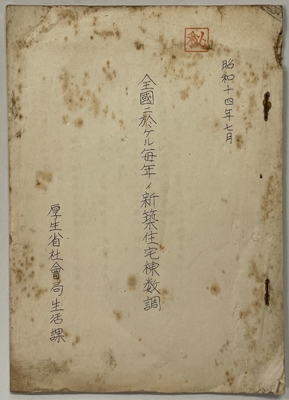 ㊙
昭和十四年七月
全國ニ於ケル毎年ノ新築住宅棟数調
厚生省社會局生活課